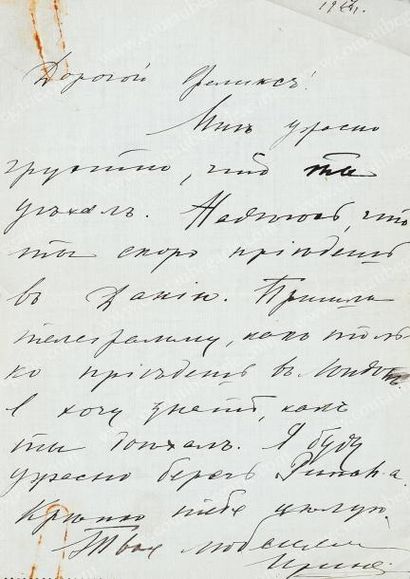 Дорогой Феликсъ!
Мнѣ ужасно
грустно, что ты
уѣхалъ. Надѣюсь, что
ты скоро пріѣдешь
въ Данію. Пришли
телеграмму, какъ толь-
ко пріѣдешь въ Лондонъ
Я хочу знать, какъ
ты доѣхалъ. Я буду
ужасно беречь
Крѣпко тебя цѣлую
Твоя любящая
Ирина